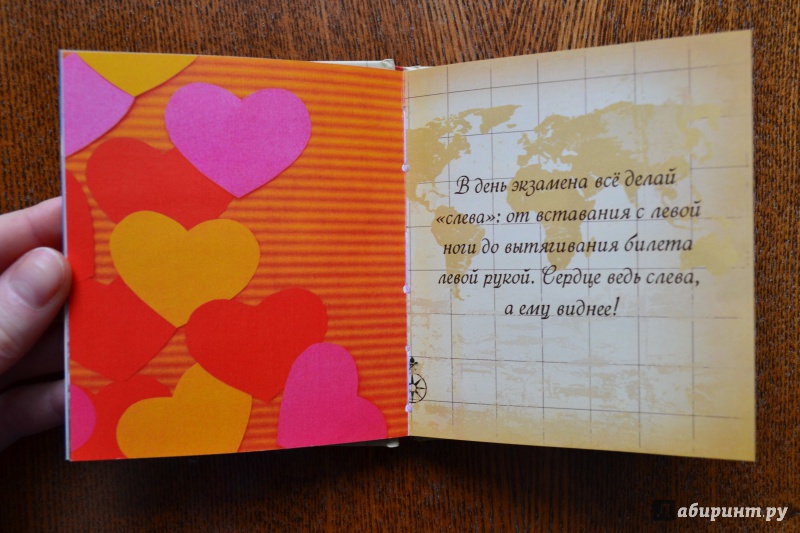 В день экзамена всё делай
«слева»: от вставания с левой
ноги до вытягивания билета
левой рукой. Сердце ведь слева,
а ему виднее!
Лабиринт.ру